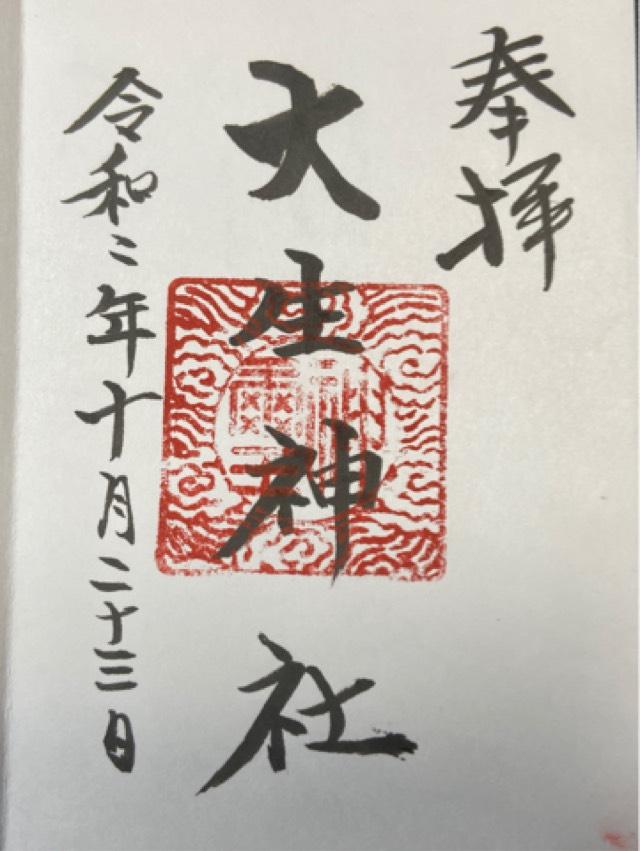 奉拝
大生神社
令和二年十月二十三日